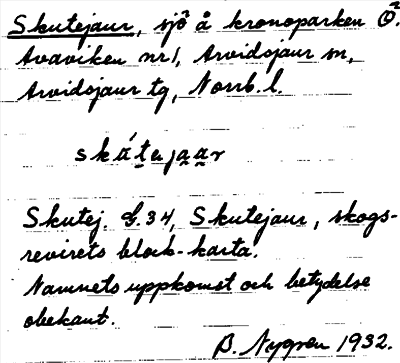 Skutejaur, sjö å kronoparken Ö.
Avaviken nr 1, Arvidsjaur sn,
Arvidsjaur tg, Norrb. l.
skátejaar
Skutej. G. 34, Skutejaur, skogs-
revirets block-karta.
Namnets uppkomst och betydelse
obekant.
B. Nygren 1932.